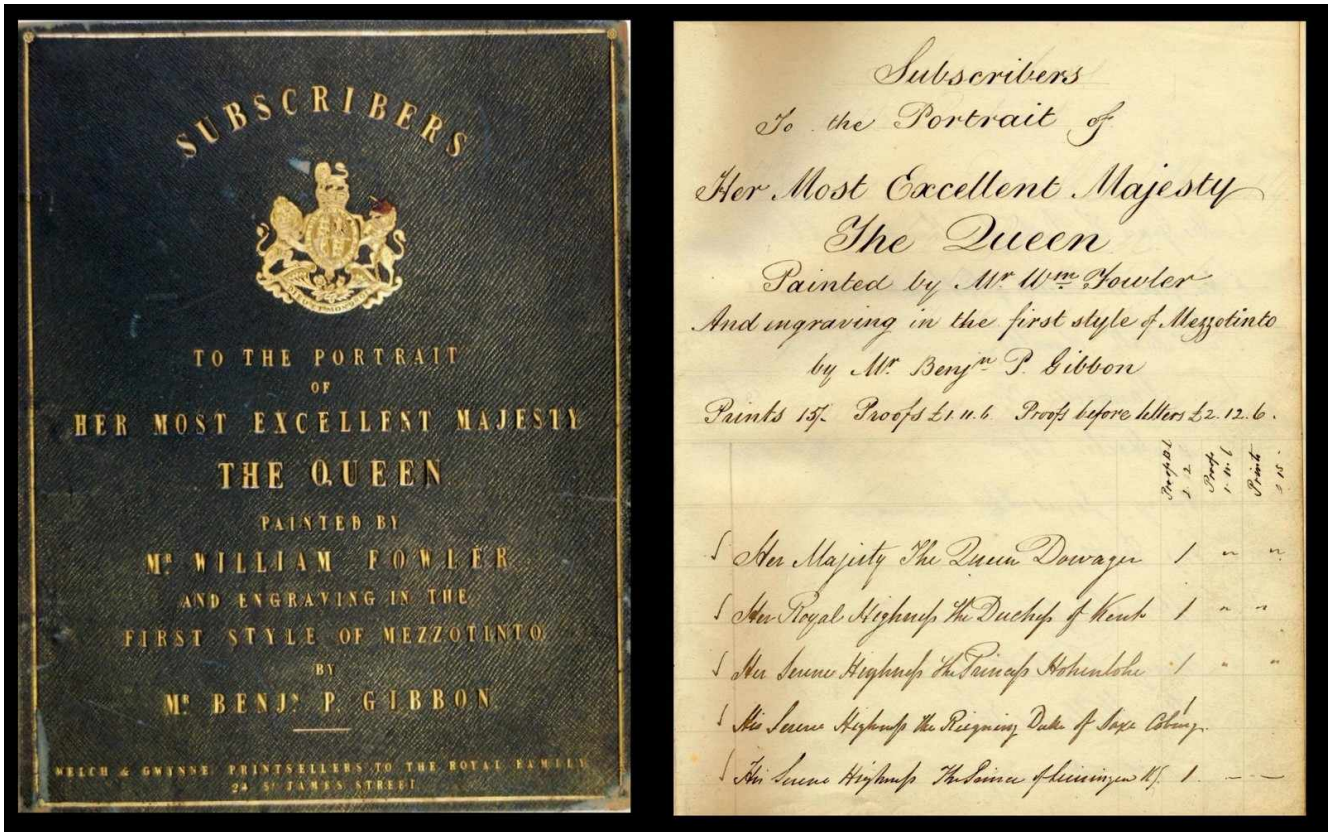 SUBSCRIBERS
TO THE PORTRAIT
OF
HER MOST EXCELLENT MAJESTY
THE QUEEN
PAINTED BY
MR WILLIAM FOWLER
AND ENGRAVING IN THE
FIRST STYLE OF MEZZOTINTO
BY
MR BENJN P. GIBBON
WELCH & GWYNNE, PRINTSELLERS TO THE ROYAL FAMILY
24 ST JAMES STREET
Subscribers
To the Portrait of
Her Most Excellent Majesty
The Queen
Painted by Mr Wm Fowler
And engraving in the first style of Mezzotinto
by Mr Benjn P. Gibbon
Prints 15/. Proofs £1.11.6 Proofs before letters £2.12.6.
Proofs
Prints
Her Majesty The Queen Dowager 1 " "
Her Royal Highness the Duchess of Kent 1 " "
Her Serene Highness the Princess Hohenlohe 1 " "
His Serene Highness the Reigning Duke of Saxe Coburg. 1
His Serene Highness The Prince of Leiningen 1 - -